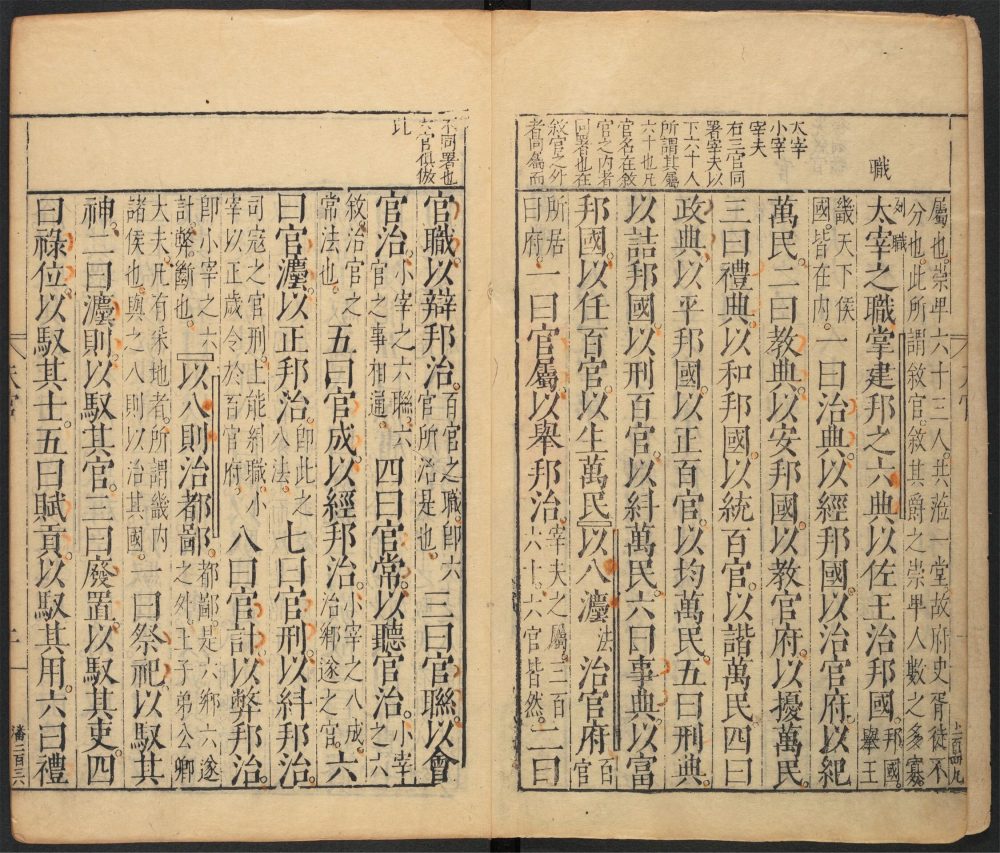 職
太宰
小宰
宰夫
右三官同
署宰夫以
下六十人
所謂其屬
六十也凡
官名在敘
官之内者
同署也在
敘官之外
者同屬而
屬也崇卑六十三人共涖一堂故府史胥徒不
分也此所謂敘官敘其爵之崇卑人數之多寡
列職
太宰之職掌建邦之六典以佐王治邦國邦國舉王
畿天下侯
國皆在内一曰治典以經邦國以治官府以紀
萬民二曰教典以安邦國以教官府以擾萬民
三曰禮典以和邦國以統百官以諧萬民四曰
政典以平邦國以正百官以均萬民五曰刑典
以詰邦國以刑百官以糾萬民六曰事典以富
邦國以任百官以生萬民以八灋法治官府百官
所居
曰府一曰官屬以舉邦治宰夫之屬三百六十六官皆然二曰
上百四九
不同署也
六官俱倣
此
官職以辯邦治百官之職即六官所治是也三曰官聯以會
官治小宰之六聯六官之事相通四曰官常以聽官治小宰
敘治官之
常法也五曰官成以經邦治小宰之八成治鄉遂之官六
曰官灋以正邦治即此之八法七曰官刑以糾邦治
司寇之官刑上能糾職小
宰以正歲令於百官府八曰官計以弊邦治
即小宰之六
計弊斷也以八則治都鄙都鄙是六鄉六遂之外王子弟公卿
大夫凡有采地者所謂畿内
諸侯也與之八則以治其國一曰祭祀以馭其
神二曰灋則以馭其官三曰廢置以馭其吏四
曰祿位以馭其士五曰賦貢以馭其用六曰禮
天官
二百三六